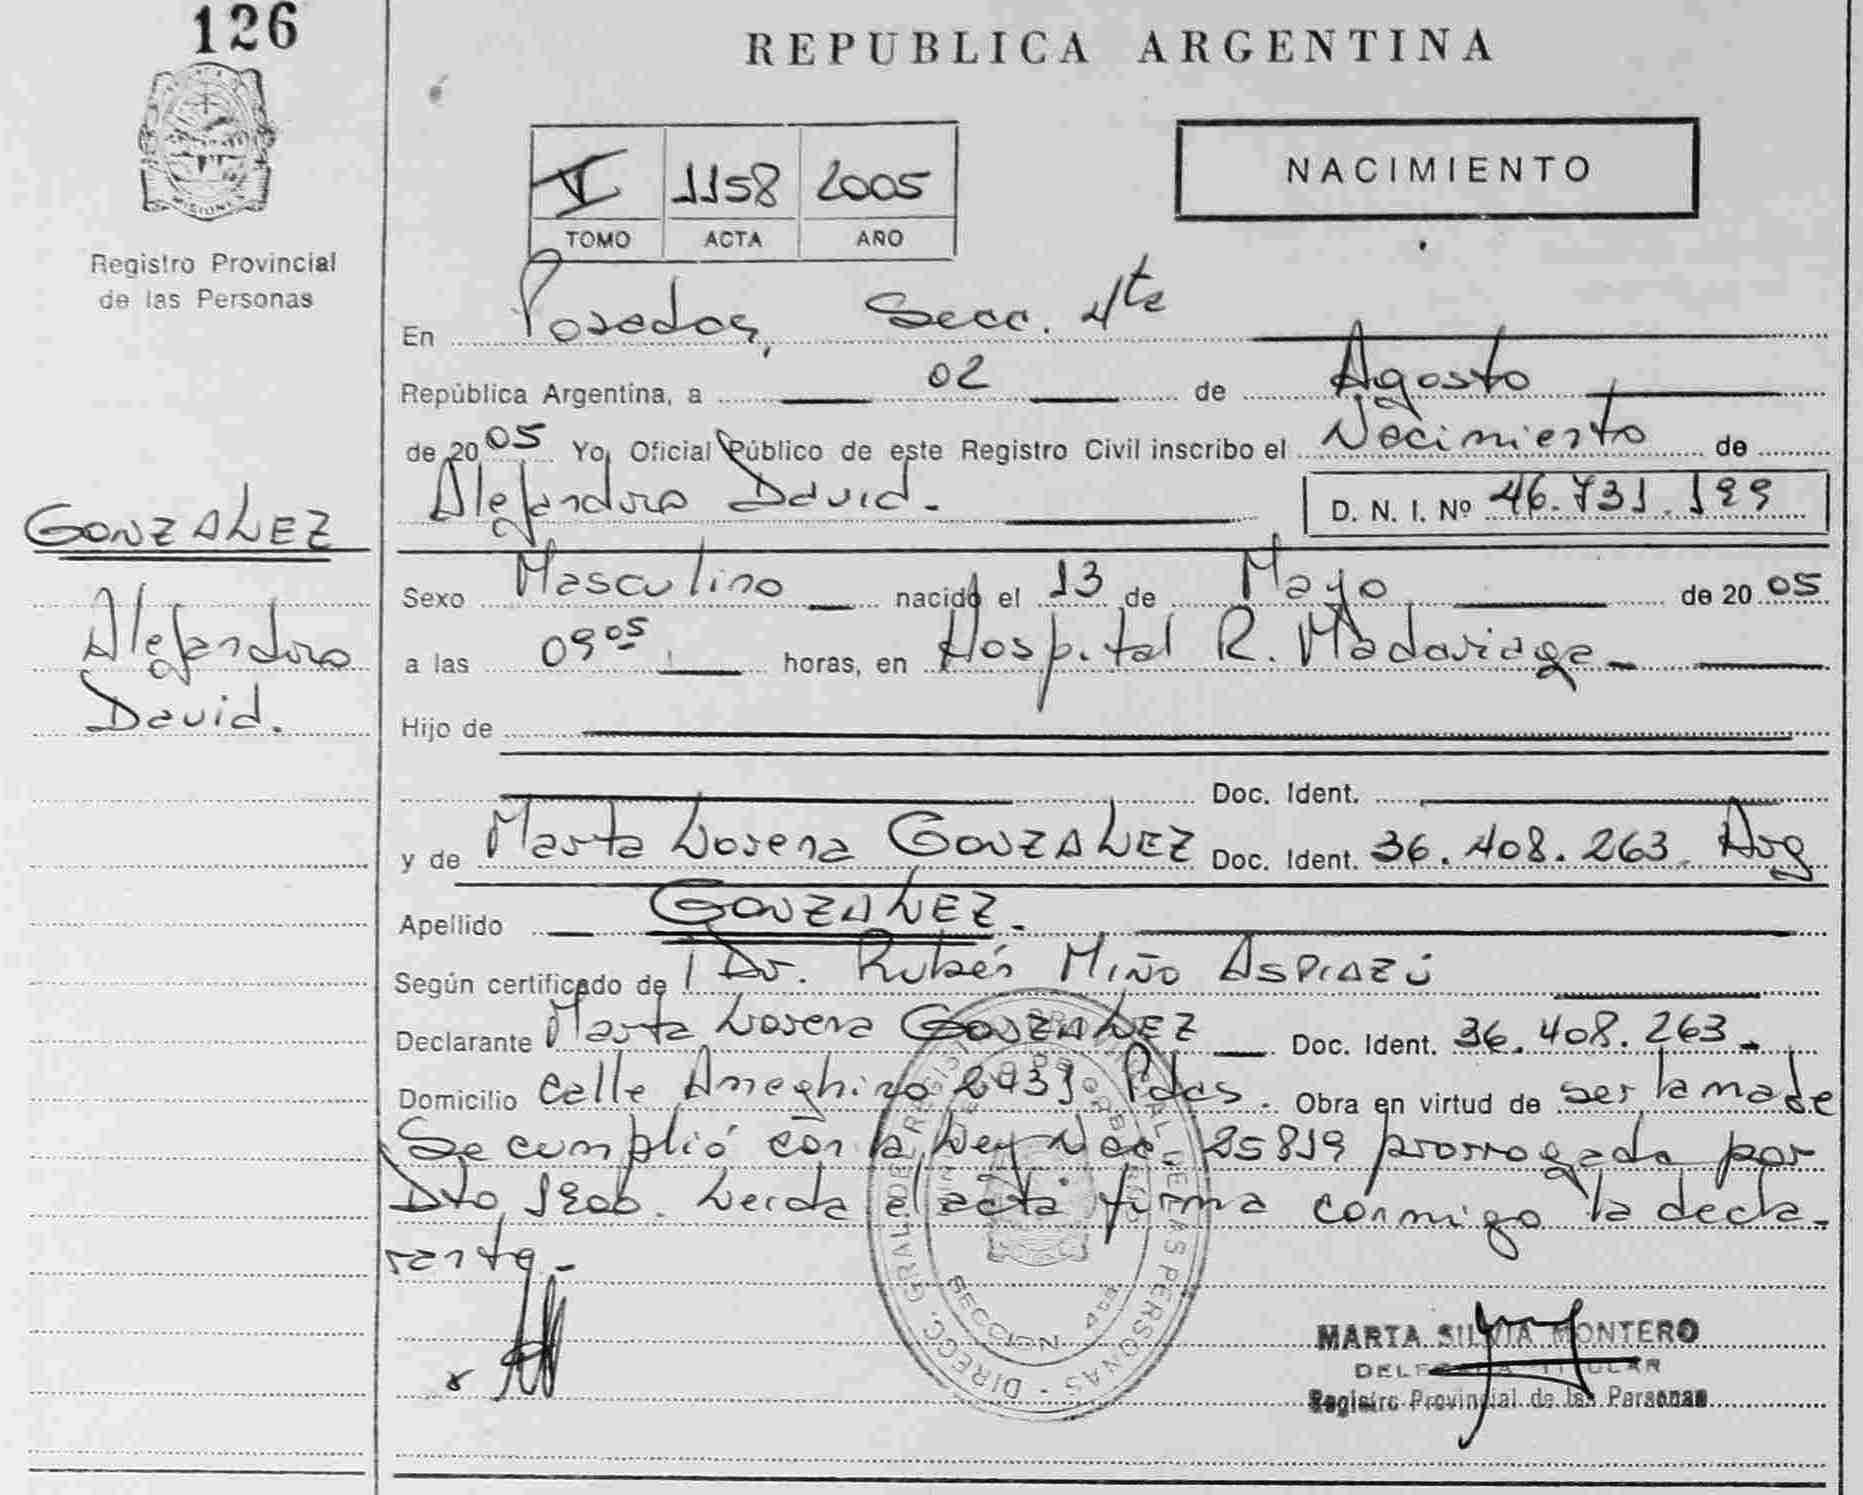 126
REPUBLICA ARGENTINA
MISIONES
Registro Provincial
de las Personas
1158 2005
TOMO ACTA AÑO
NACIMIENTO
En Posadas, Secc. 4ta
República Argentina, a 02 de Agosto
de 2005 Yo, Oficial Público de este Registro Civil inscribo el Nacimiento de
Alejandro David.
D. N. I. Nº 46.731.199
GONZALEZ
Alejandro
David.
Sexo Masculino nacido el 13 de Mayo de 2005
a las 09 05 horas, en Hospital R. Madariaga
Hijo de
Doc. Ident.
y de Marta Lorena GONZALEZ Doc. Ident. 36.408.263 Arg
Apellido GONZALEZ.
Según certificado de Dr. Rubén Miño Aspiazú
Declarante Marta Lorena GONZALEZ Doc. Ident. 36.408.263.
Domicilio calle Ameghino Pdas. Obra en virtud de ser la made
Se cumplió con la Ley Nac. 25819 prorrogada por
Dto Leida el acta firma conmigo la decla-
rante
DIRECC. GRAL. DE REGISTRO PROVINCIAL DE LAS PERSONAS
SECCION
MARTA SILVIA MONTERO
DELEGADA TITULAR
Registro Provincial de las Personas